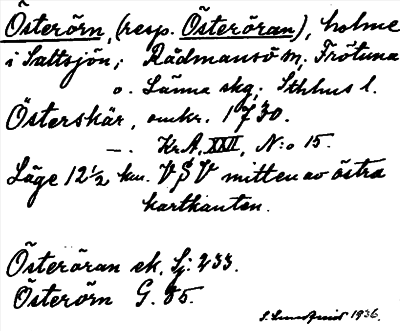 Österörn, (resp. Österöran), holme
i Saltsjön; Rådmansö m; Frötuna
o. Länna skg; Sthlms l.
Österskär, omkr. 1730.
—. KrA, XXII, N:o 15.
Läge 12½ km. VSV mitten av östra
kartkanten.
Österöran ek. Sj: 233.
Österörn G. 85.
S. Lundqvist 1936.